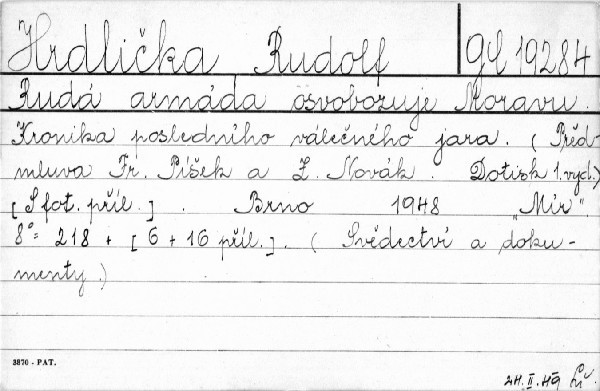 Hrdlička Rudolf gC 19284
Rudá armáda osvobozuje Moravu.
Kronika posledního válečného jara. (Před-
mluva Fr. Píšek a Z. Novák. Dotisk 1. vyd.)
[S fot. příl.]. Brno 1948 „Mír".
8°= 218 + [6 + 16 příl.]. (Svědectví a doku-
menty.)
3870 - PAT.
24. II. 49